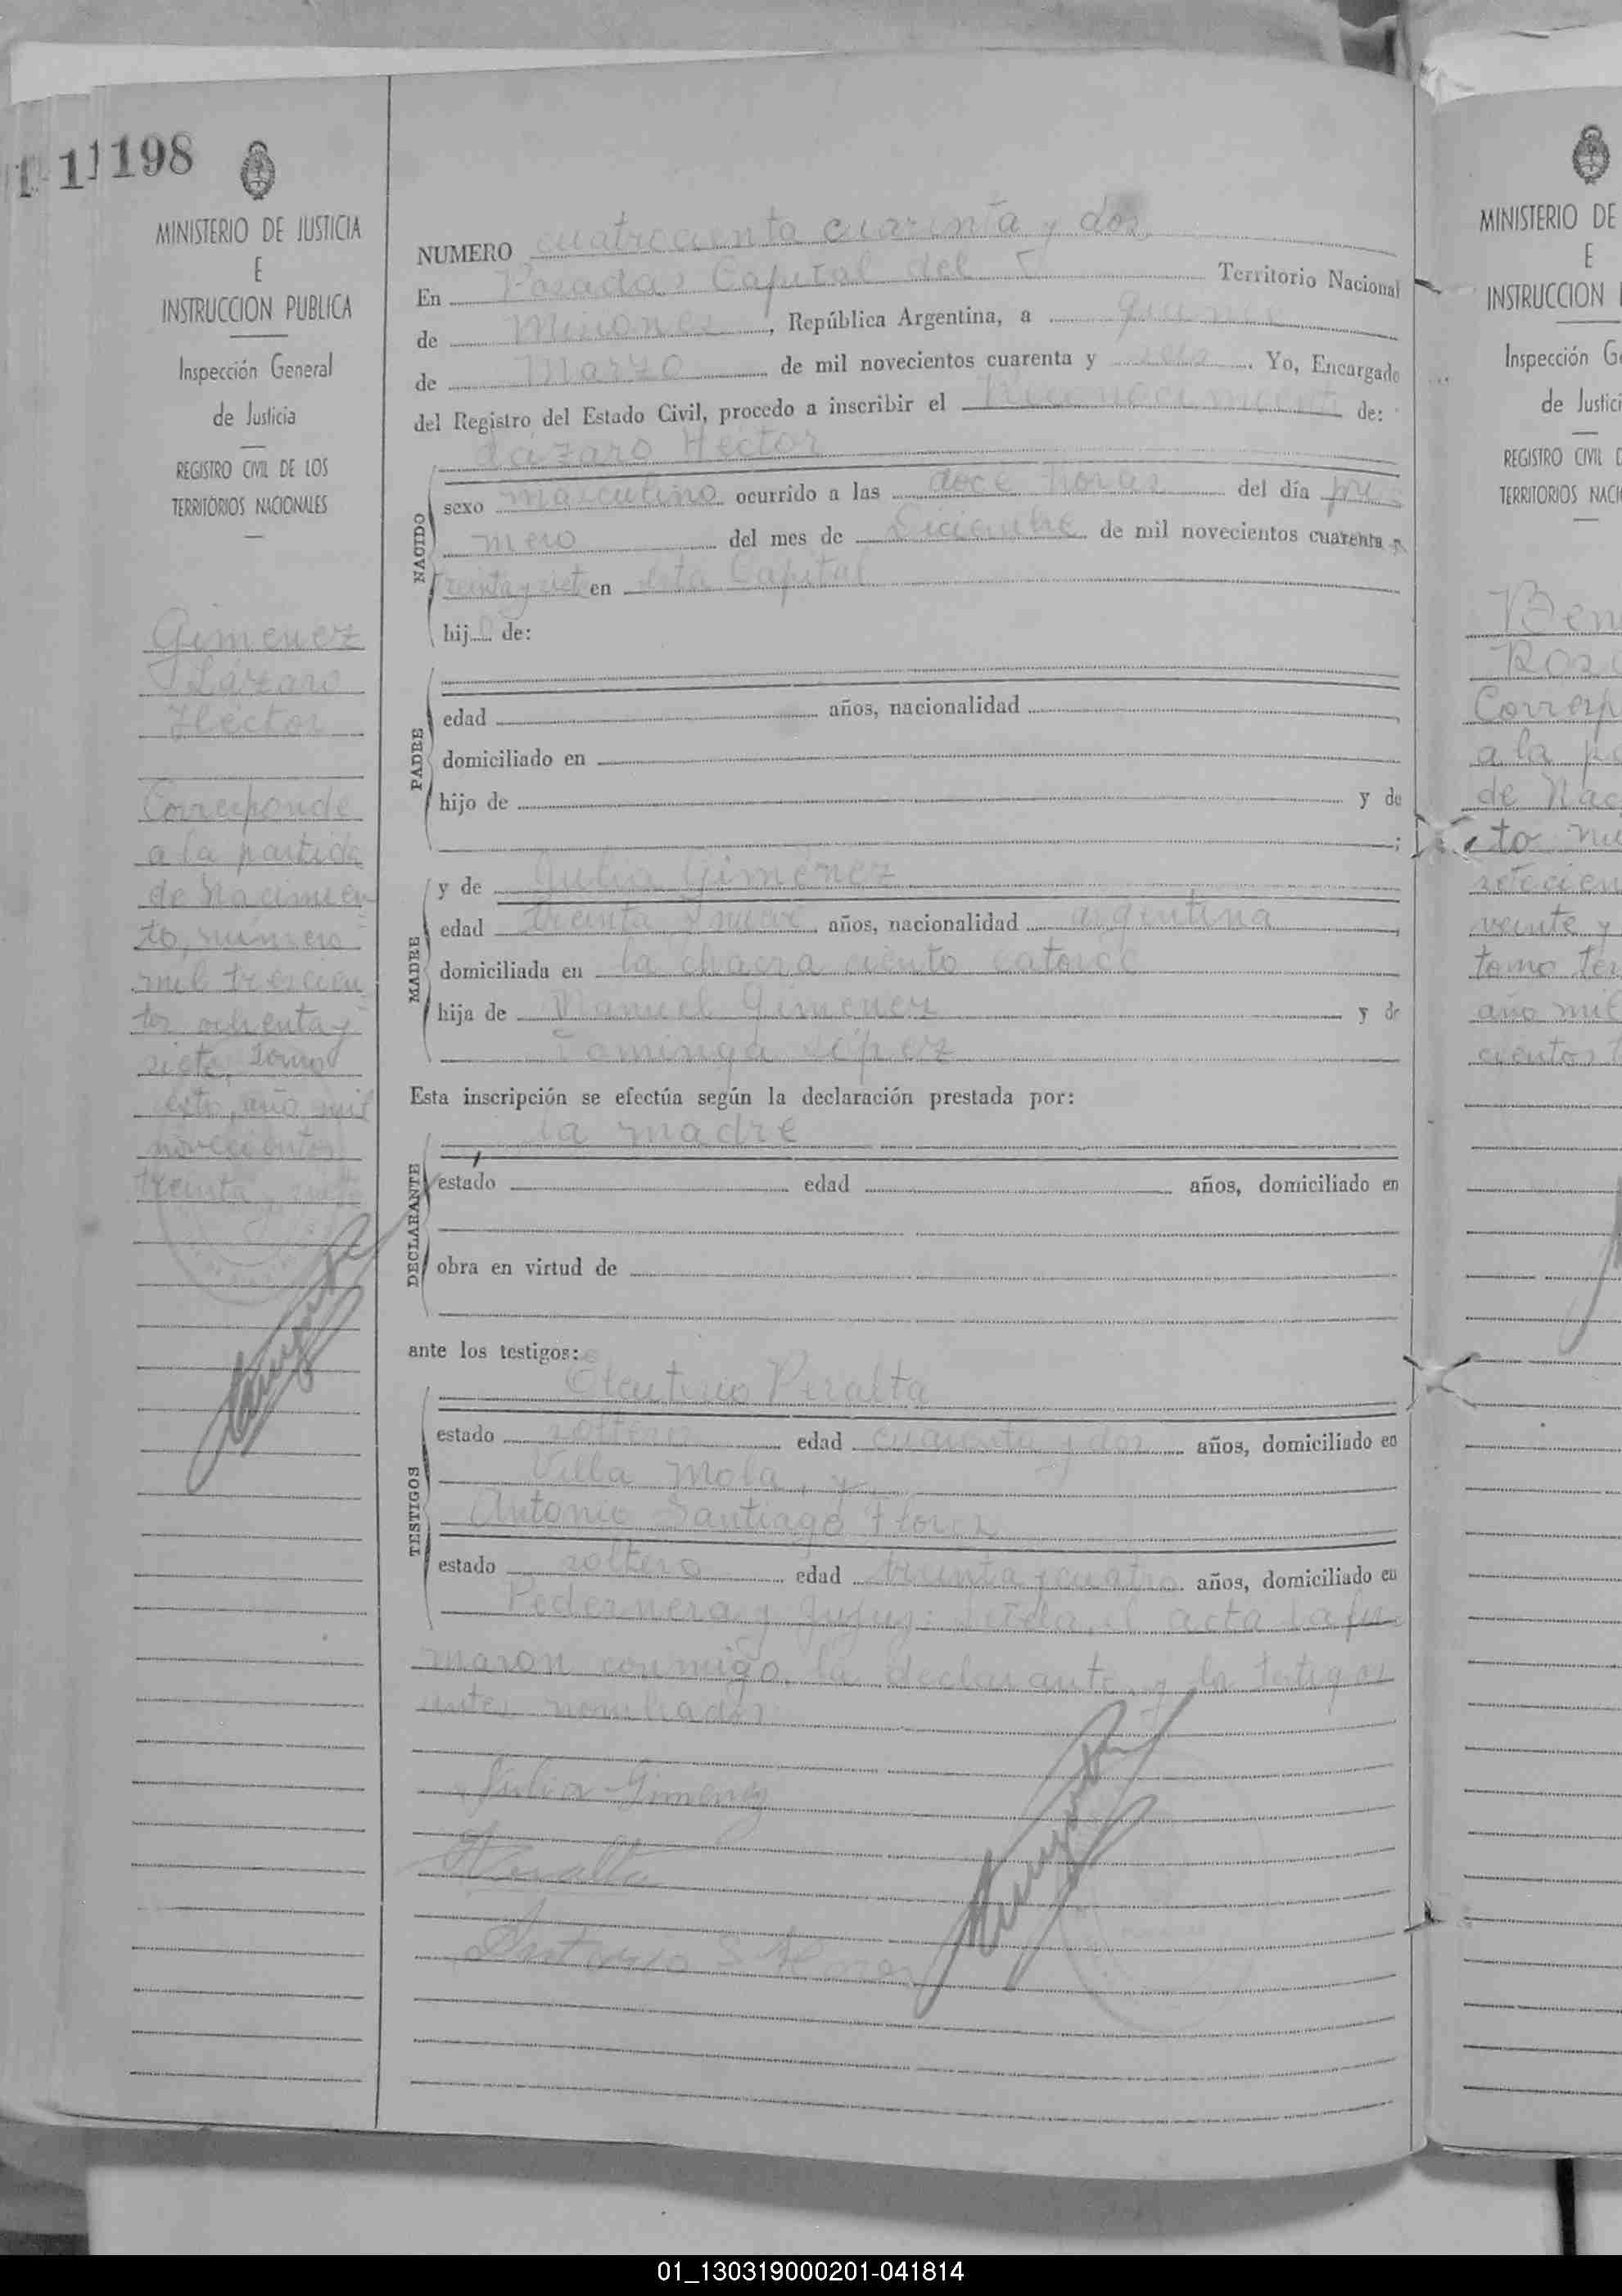 1 11198
MINISTERIO DE JUSTICIA
E
INSTRUCCION PUBLICA
Inspección General
de Justicia
REGISTRO CIVIL DE LOS
TERRITORIOS NACIONALES
Gimenez
Lázaro
Hector
Corresponde
a la partida
de Nacimien
to, número
mil trescien
tos ochenta y
siete, tomo
año mil
novecientos
treinta y siete
NUMERO cuatrocientos cuarenta y dos
En Posadas Capital del Territorio Nacional
de Misiones, República Argentina, a quince
de Marzo de mil novecientos cuarenta y seis. Yo, Encargado
del Registro del Estado Civil, procedo a inscribir el de:
Lázaro Hector
NACIDO
sexo masculino ocurrido a las doce horas del día pri
mero del mes de Diciembre de mil novecientos cuarenta y
treinta y siete en esta Capital
hijo de:
PADRE
edad años, nacionalidad
domiciliado en
hijo de y de
;
MADRE
y de Julia Gimenez
edad treinta y nueve años, nacionalidad argentina
domiciliada en la chacra ciento catorce
hija de Manuel Gimenez y de
Dominga López
Esta inscripción se efectúa según la declaración prestada por:
la madre
DECLARANTE
estado edad años, domiciliado en
obra en virtud de
ante los testigos:
TESTIGOS
Peralta
estado soltero edad cuarenta y dos años, domiciliado en
Villa Mola, y
Antonio Santiago Flores
estado soltero edad treinta y cuatro años, domiciliado en
Pedernera y Jujuy. Leída el acta la fir
maron conmigo, la declarante y los testigos
antes nombrados
Julia Gimenez
Peralta
Antonio S Flores
MINISTERIO DE
E
INSTRUCCION
Inspección Ge
de Justici
REGISTRO CIVIL D
TERRITORIOS NACI
Ben
Ros
Corresp
a la pa
de Nac
to nu
setecien
veinte y
tomo ter
año mil
cientos t
01_130319000201-041814